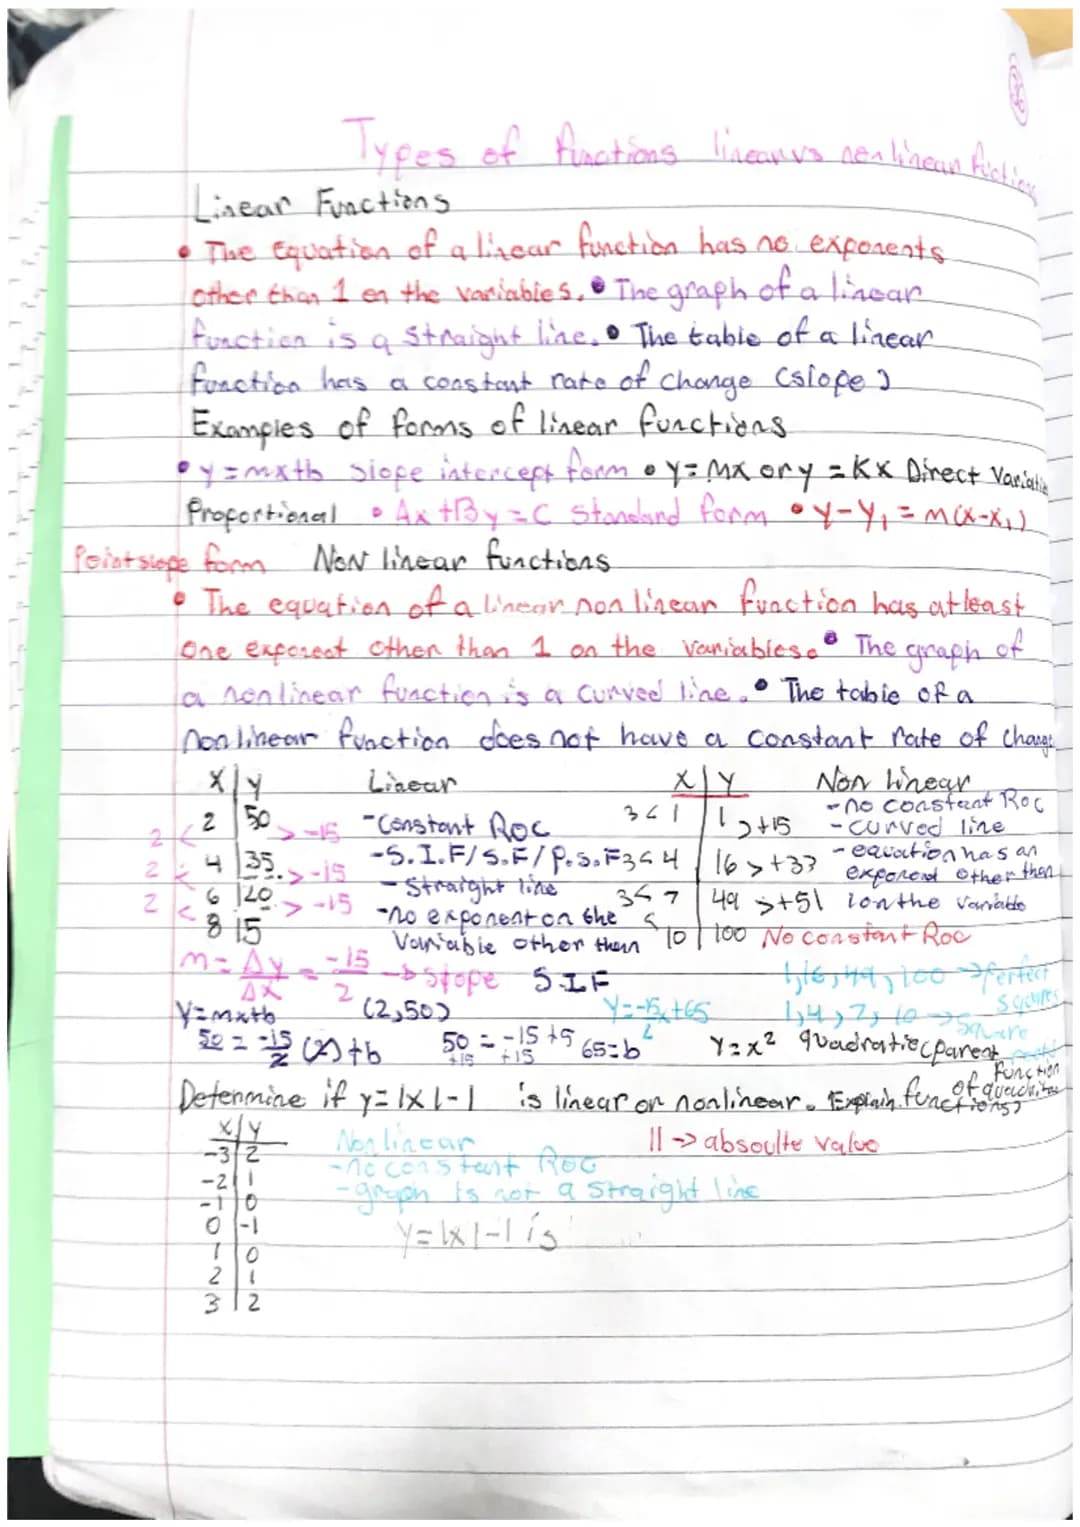 Types of functions linear vs nonlinear fuctions
Linear Functions
• The Equation of a linear function has no exponents
other than 1 on the variables. • The graph of a linear
function is a straight line. • The table of a linear
function has a constant rate of change (slope)
Examples of forms of linear functions
• y=mx+b slope intercept form • y=mx or y=Kx Direct Variation
Proportional • Ax+By=C Standard form • y-y₁=m(x-x₁)
Point slope form Non linear functions
• The equation of a linear non linear function has at least
one exponent other than 1 on the variables. • The graph of
a nonlinear function is a curved line. • The table of a
nonlinear function does not have a constant rate of change
x|y Linear x|y Non linear
2|50 >-15 -Constant ROC 3< 1|1 >+15 -no constant Roc
-curved line
2< 4|35 >-15 -S.I.F/S.F/P.S.F 3< 4|16 >+33 -equation has an
exponent other than
2< 6|20 >-15 -Straight line 3< 7|49 >+51 1 on the variable
2< 8|5 -no exponent on the 10|100 No constant Roc
Variable other than
m=Δy/Δx=-15/2→slope S.I.F 1,16,49,100→Perfect
squares
y=mx+b (2,50) y=-15/2x+65 1,4,7,10→square
50=-15/2(2)+b 50=-15+b 65=b y=x² quadratic (parent
+15 +15 function
of quadratic
functions)
Determine if y=|x|-1 is linear or nonlinear. Explain.
x|y
-3|2 Nonlinear || → absoulte value
-2|1 -no constant ROC
-1|0 -graph is not a straight line
0|-1 y=|x|-1 is
1|0
2|1
3|2